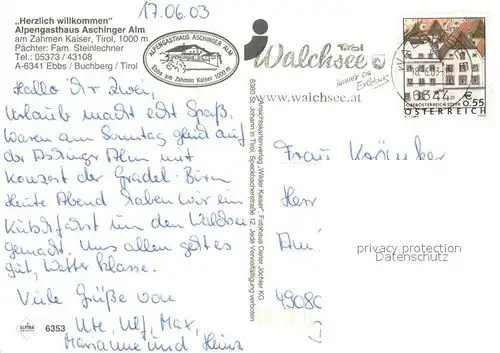 17.06.03
„Herzlich willkommen"
Alpengasthaus Aschinger Alm
am Zahmen Kaiser, Tirol, 1000 m
Pächter: Fam. Steinlechner
Tel.: 05373 / 43108
A-6341 Ebbs / Buchberg / Tirol
ALPENGASTHAUS ASCHINGER ALM
Ebbs am Zahmen Kaiser 1000 m
Hallo Ihr zwei,
Urlaub macht echt Spaß.
Waren am Sonntag gleich auf
der Aschinger Alm mit
Konzert der
Heute Abend haben wir ein
Kutschfahrt um den Walchsee
gemacht. Uns allen geht es
gut, Wetter klasse.
Viele Grüße von
Ute, Ulf, Max,
Marianne und Heinz
ALPINA
6353
Ansichtskartenverlag „Wilder Kaiser", Fotohaus Dieter Jöchler KG
6380 St. Johann in Tirol, Speckbacherstraße 12, Jede Vervielfältigung verboten
Tirol
Walchsee
immer ein Erlebnis
www.walchsee.at
6344
€ 0,55
ÖSTERREICH
Frau
Herr
privacy protection
Datenschutz
4908